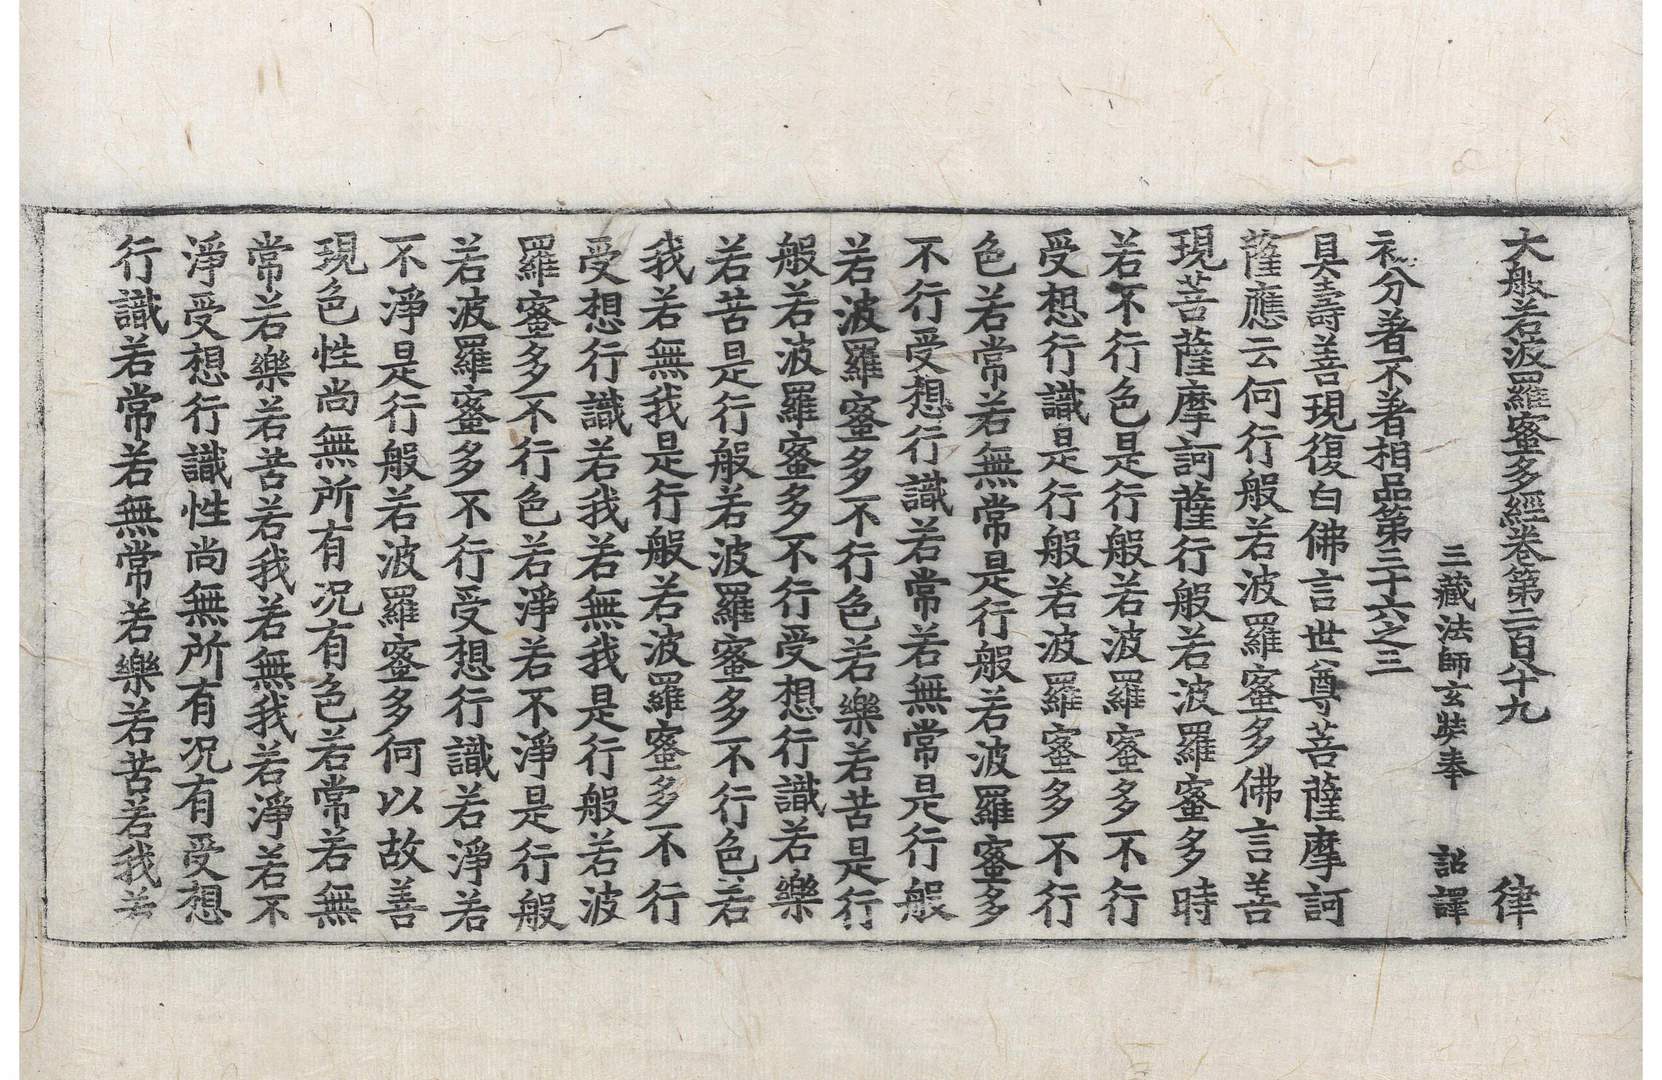 大般若波羅蜜多經卷第二百八十九 律
三藏法師玄奘奉 詔譯
初分著不著相品第三十六之三
具壽善現復白佛言世尊菩薩摩訶
薩應云何行般若波羅蜜多佛言善
現菩薩摩訶薩行般若波羅蜜多時
若不行色是行般若波羅蜜多不行
受想行識是行般若波羅蜜多不行
色若常若無常是行般若波羅蜜多
不行受想行識若常若無常是行般
若波羅蜜多不行色若樂若苦是行
般若波羅蜜多不行受想行識若樂
若苦是行般若波羅蜜多不行色若
我若無我是行般若波羅蜜多不行
受想行識若我若無我是行般若波
羅蜜多不行色若淨若不淨是行般
若波羅蜜多不行受想行識若淨若
不淨是行般若波羅蜜多何以故善
現色性尚無所有况有色若常若無
常若樂若苦若我若無我若淨若不
淨受想行識性尚無所有况有受想
行識若常若無常若樂若苦若我若